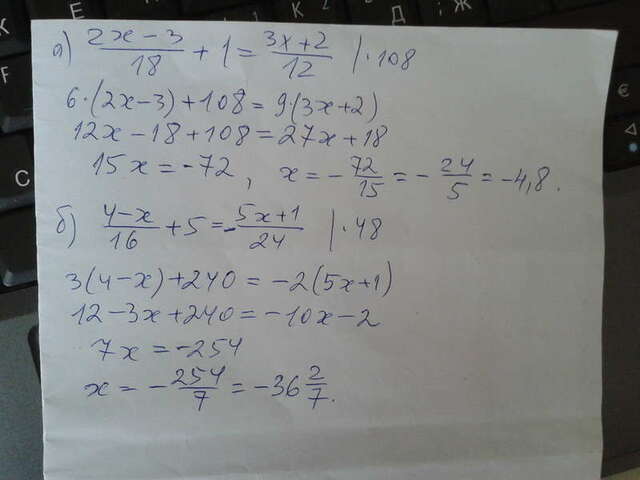 а) (2x-3)/18 + 1 = (3x+2)/12 | · 108
6·(2x-3)+108=9·(3x+2)
12x-18+108=27x+18
15x=-72, x=-72/15=-24/5=-4,8.
б) (4-x)/16 + 5 = -(5x+1)/24 | · 48
3(4-x)+240=-2(5x+1)
12-3x+240=-10x-2
7x=-254
x=-254/7=-36 2/7.